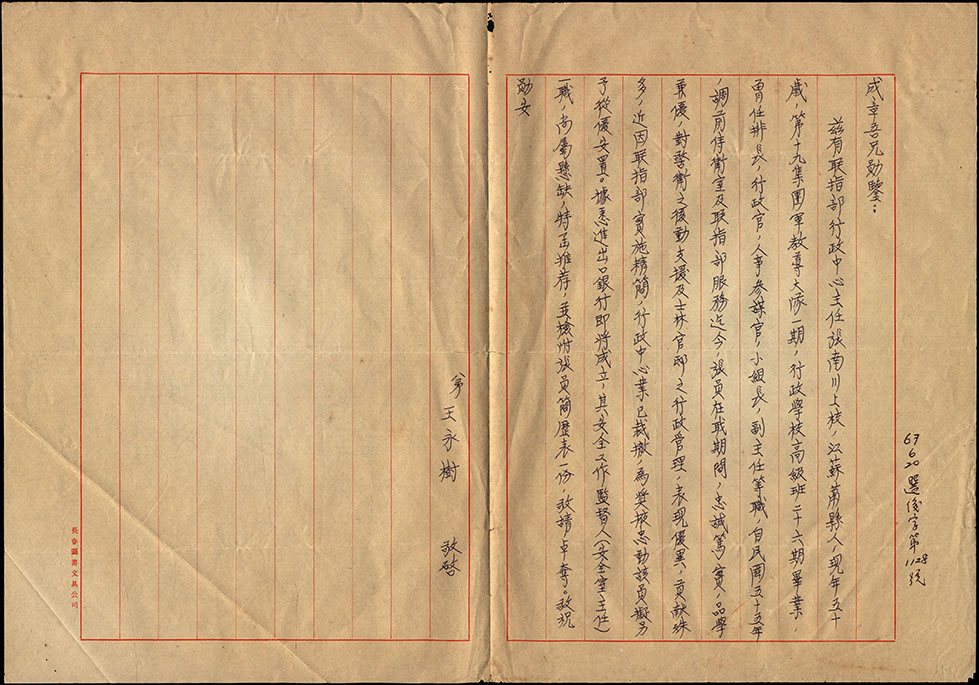 67
6.20 選俊字第1128號
成章吾兄勛鑒：
茲有联指部行政中心主任張南川上校，江蘇蕭縣人，現年五十
歲，第十九集團軍教導大隊一期，行政學校高級班二十六期畢業，
曾任排長，行政官，人事參謀官，小組長，副主任等職，自民國五十五年
調前侍衛室及联指部服務迄今，張員在職期間，忠誠篤實，品學
兼優，對警衛之後勤支援及士林官邸之行政管理，表現優異，貢献殊
多，近因联指部實施精簡，行政中心業已裁撤，為奬掖忠勤該員擬另
予從優安置。據悉進出口銀行即將成立，其安全工作監督人（安全室主任）
一職，尚屬懸缺，特函推荐，並檢附張員簡歷表一份，敬請卓奪。敬祝
勛安
弟 王永樹 敬啓
長春圖書文具公司